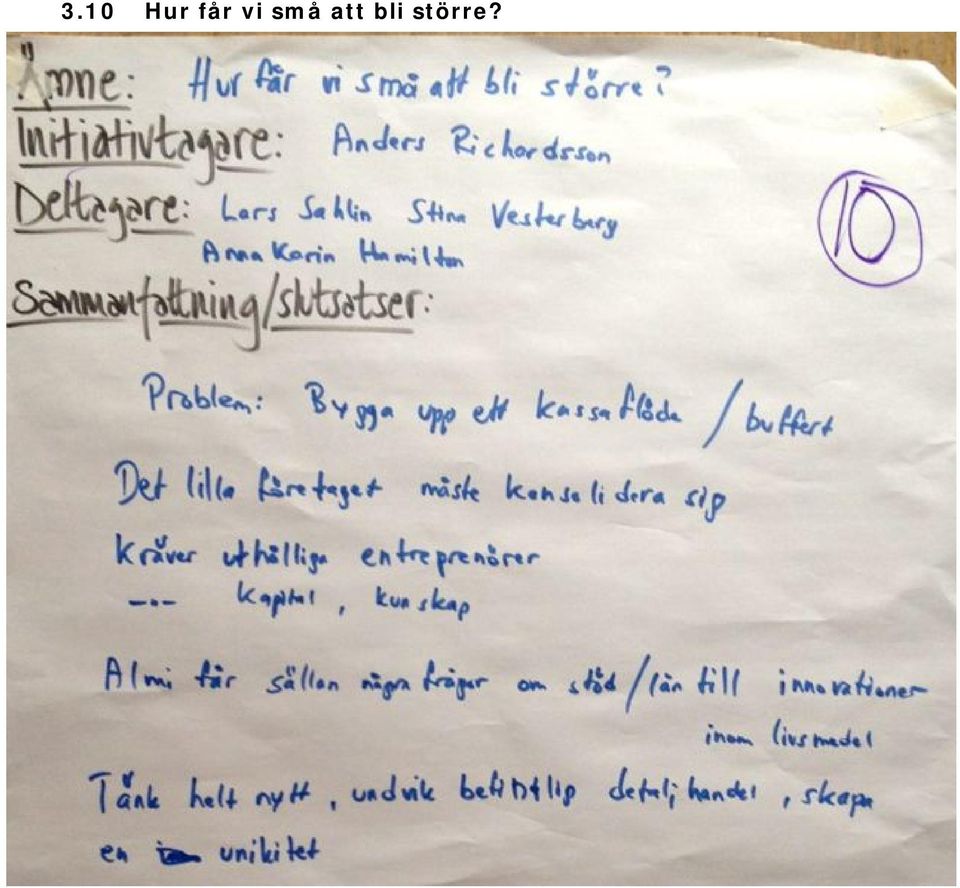 3.10 Hur får vi små att bli större?
Ämne: Hur får vi små att bli större?
Initiativtagare: Anders Richardsson
Deltagare: Lars Sahlin Stina Vesterberg
Anna Karin Hamilton
10
Sammanfattning/slutsatser:
Problem: Bygga upp ett kassaflöde / buffert
Det lilla företaget måste konsolidera sig
Kräver uthålliga entreprenörer
-"- Kapital, kunskap
Almi får sällan några frågor om stöd/lån till innovationer
inom livsmedel
Tänk helt nytt, undvik befintlig detaljhandel, skapa
en unikitet